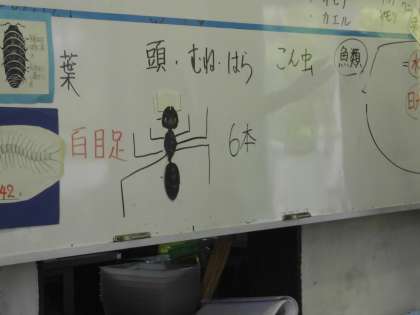 葉
頭・むね・はら
こん虫
魚類
カエル
百目足
6本
42.